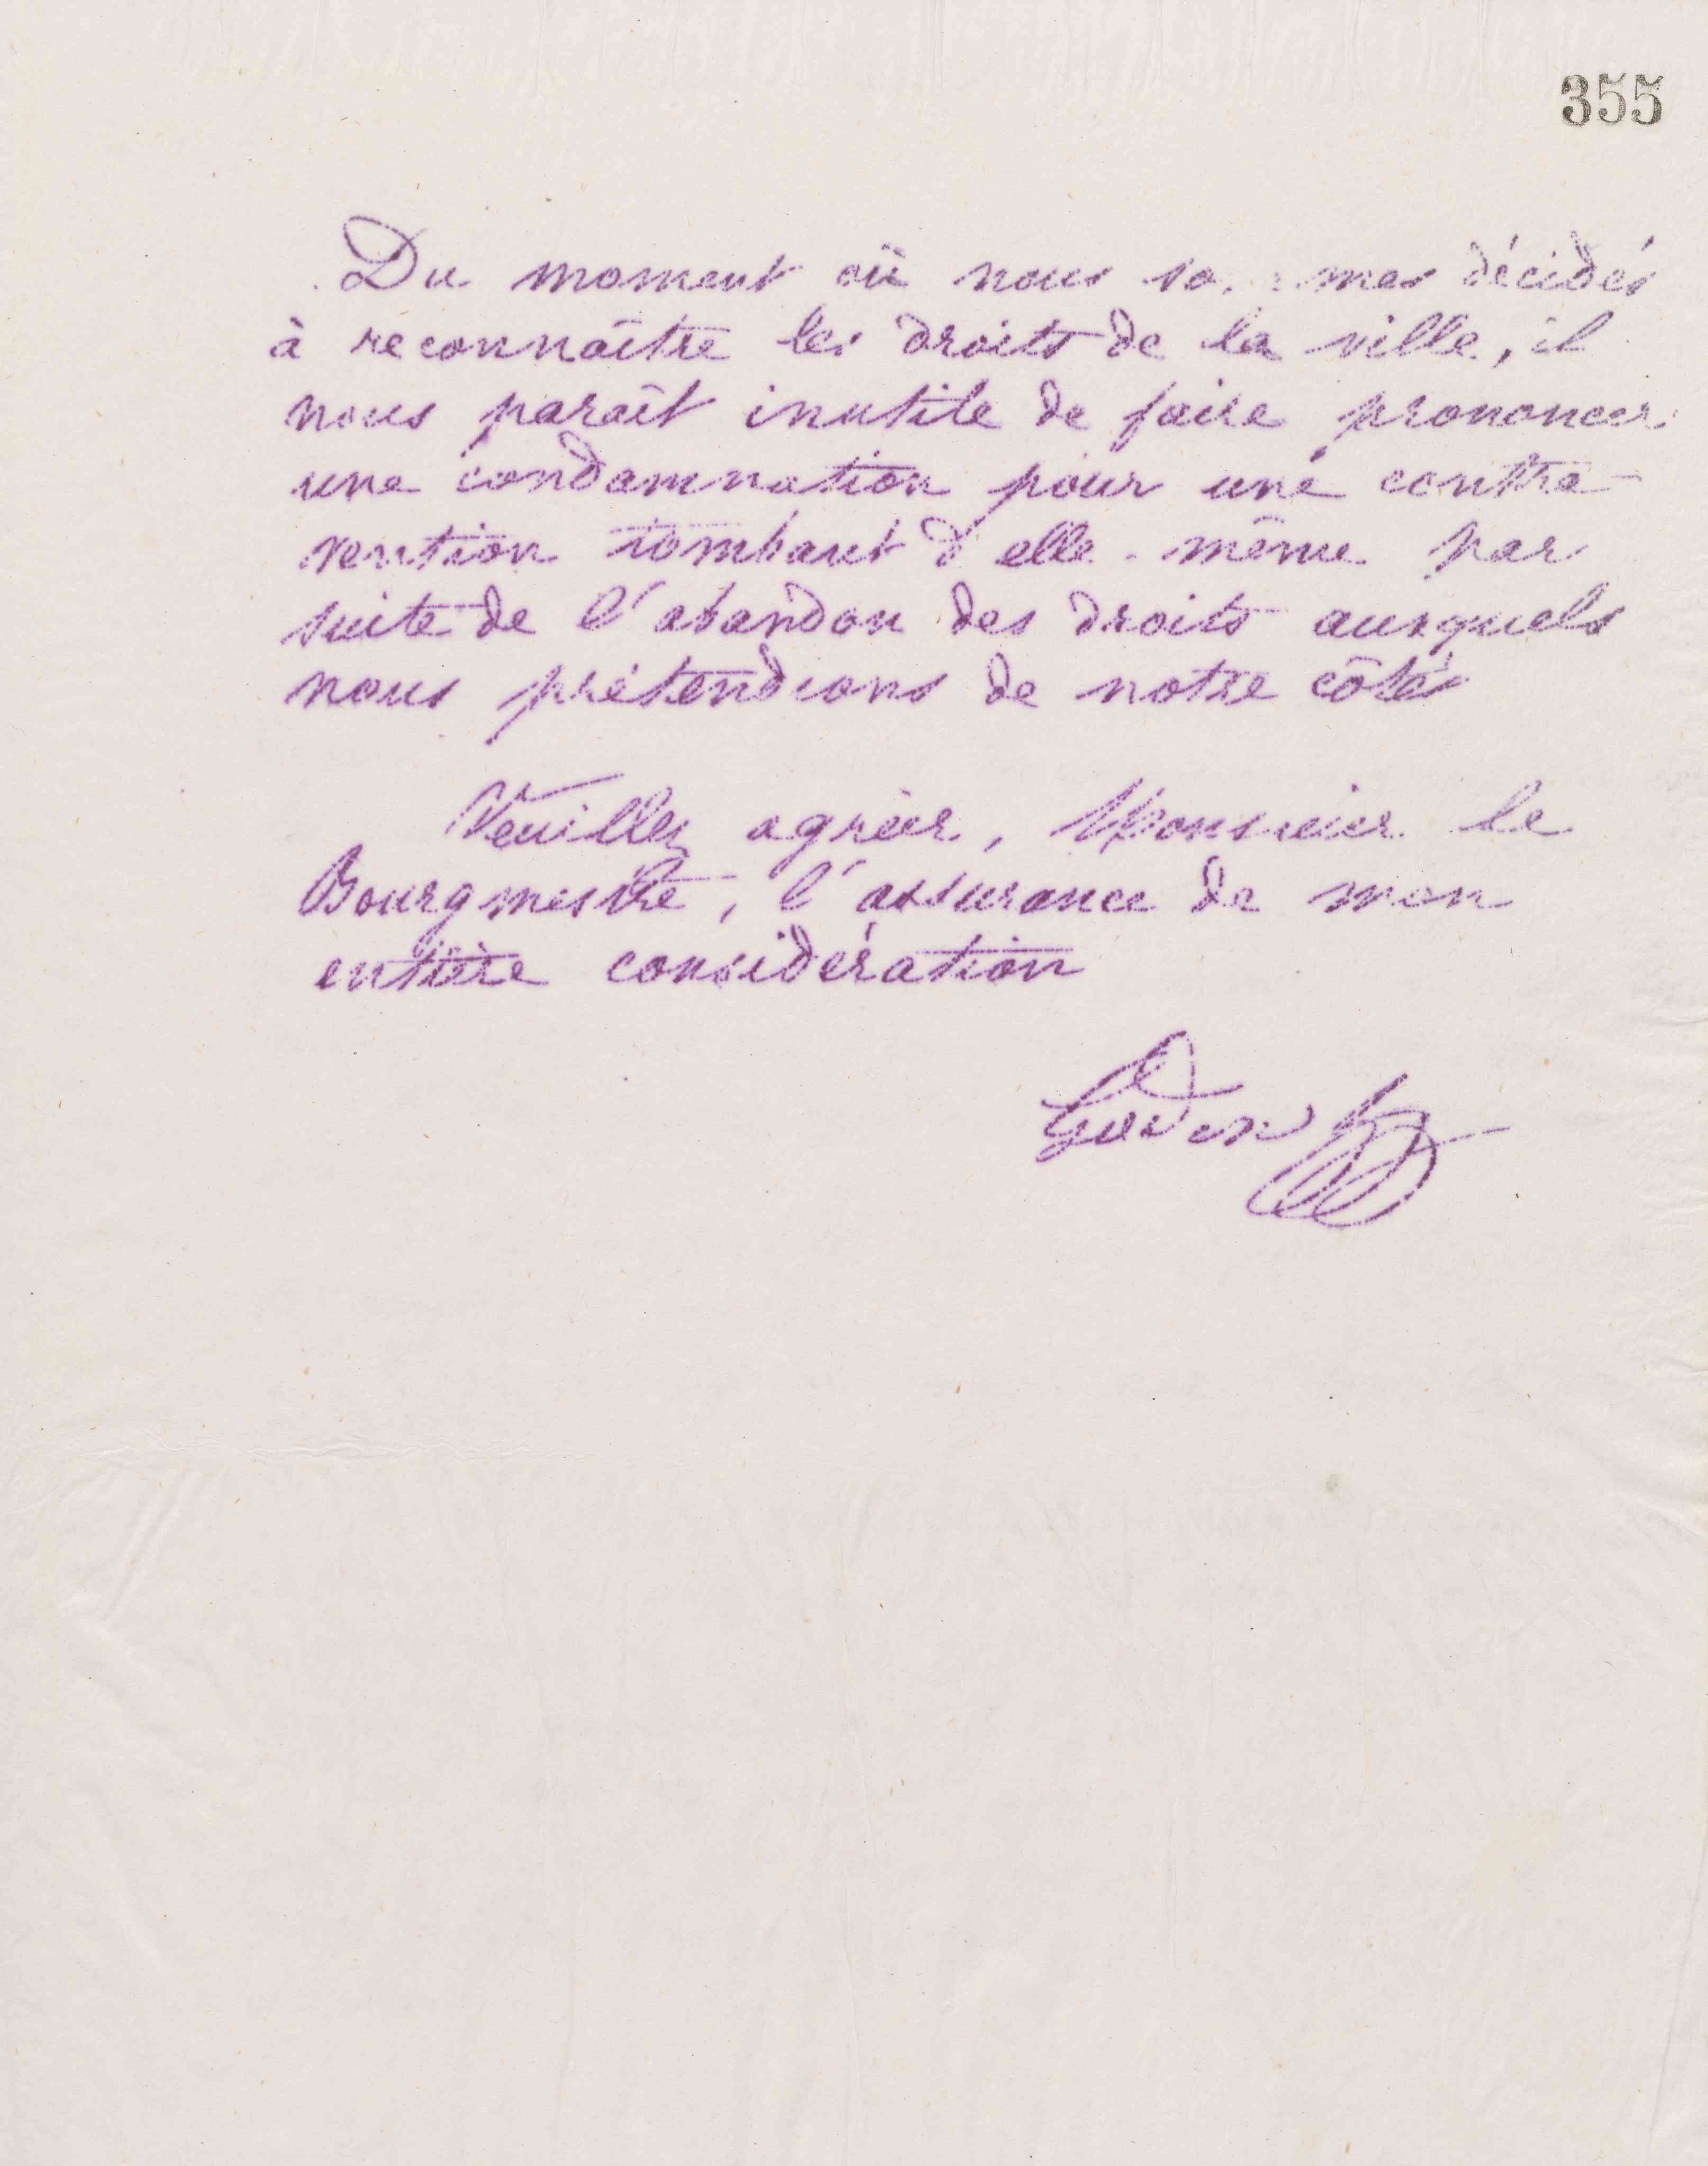 355
Du moment où nous sommes décidés
à reconnaître les droits de la ville, il
nous paraît inutile de faire prononcer
une condamnation pour une contra-
vention tombant d'elle-même par
suite de l'abandon des droits auxquels
nous prétendions de notre côté
Veuillez agréer, Monsieur le
Bourgmestre, l'assurance de mon
entière considération
Godin